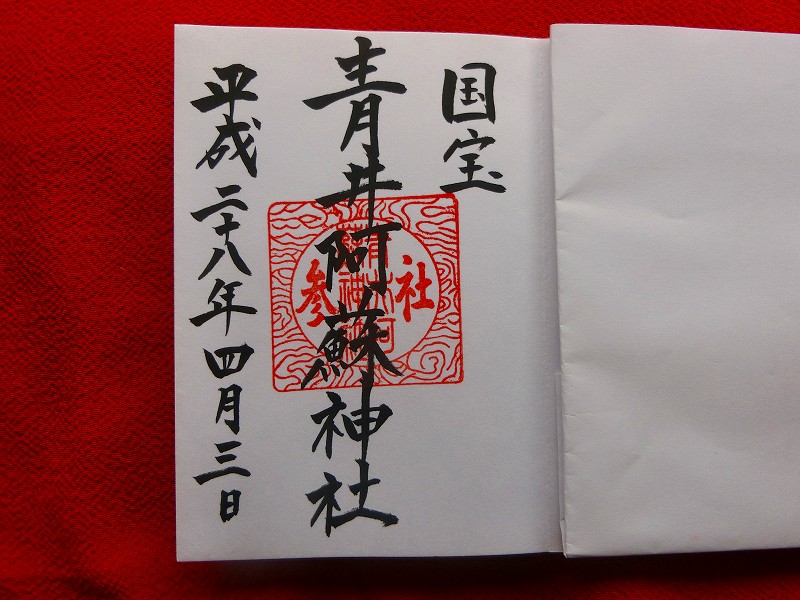 国宝
青井阿蘇神社
社参
平成二十八年四月三日